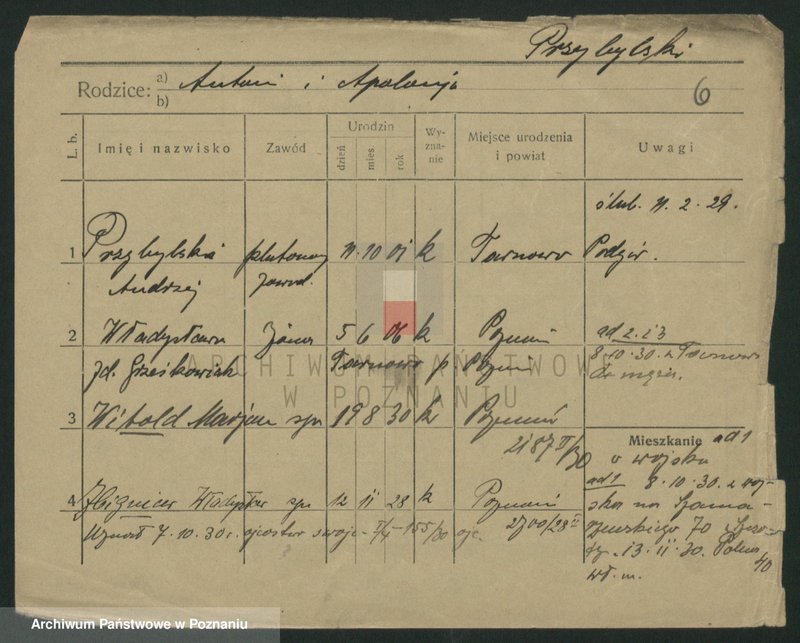 Przybylski
Rodzice: a) Antoni i Apolonja
b)
6
L. b. Imię i nazwisko Zawód Urodzin dzień mies. rok Wyznanie Miejsce urodzenia i powiat Uwagi
ślub. 11. 2. 29.
1 Przybylski plutonowy 11. 10 01 k Tarnowo Podgór.
Andrzej zawod.
2 Władysława żona 5 6 06 k Poznań ad 2. i 3
zd. Grześkowiak Tarnowo p. Pozn. 8. 10. 30. z Tarnowa
do męża.
3 Witold Marjan syn 19 8 30 k Poznań
2187 II/30
Mieszkanie ad 1
w wojsku
ad 1 8. 10. 30. z woj-
4 Zbigniew Władysław syn 12 11 28 k Poznań
2700/28 II
ska na Szama-
rzewskiego 70
Uznał 7. 10. 30 r. ojcostwo swoje 155/30
13. 11. 30. Polna
40
wł. m.
ARCHIWUM PAŃSTWOWE
W POZNANIU
Archiwum Państwowe w Poznaniu